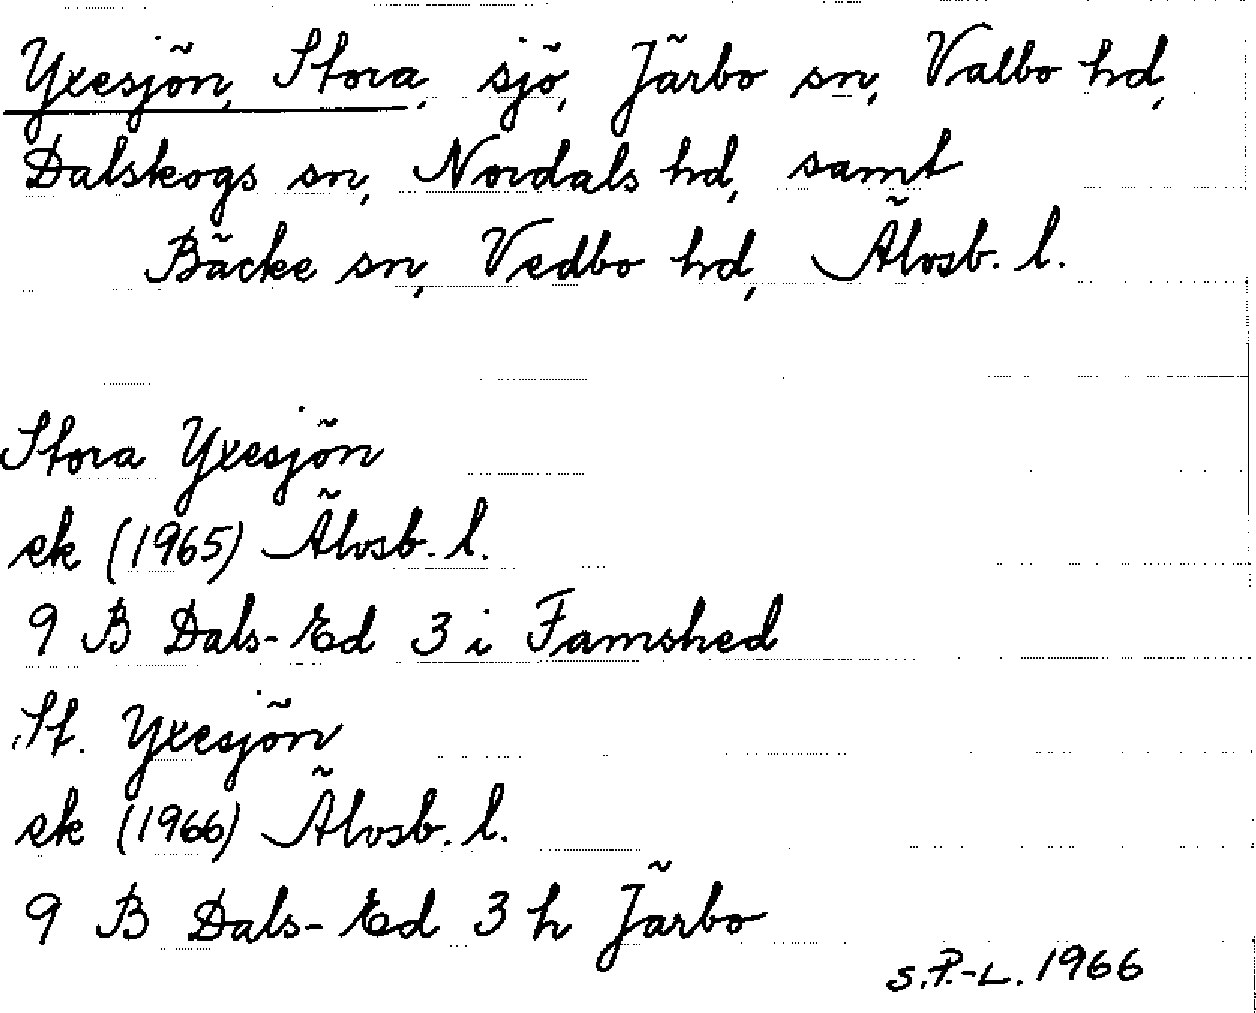 Yxesjön, Stora, sjö, Järbo sn, Valbo hd,
Dalskogs sn, Nordals hd, samt
Bäcke sn, Vedbo hd, Älvsb. l.
Stora Yxesjön
ek (1965) Älvsb. l.
9 B Dals-Ed 3 i Famshed
St. Yxesjön
ek (1966) Älvsb. l.
9 B Dals-Ed 3 h Järbo
S.P.-L. 1966